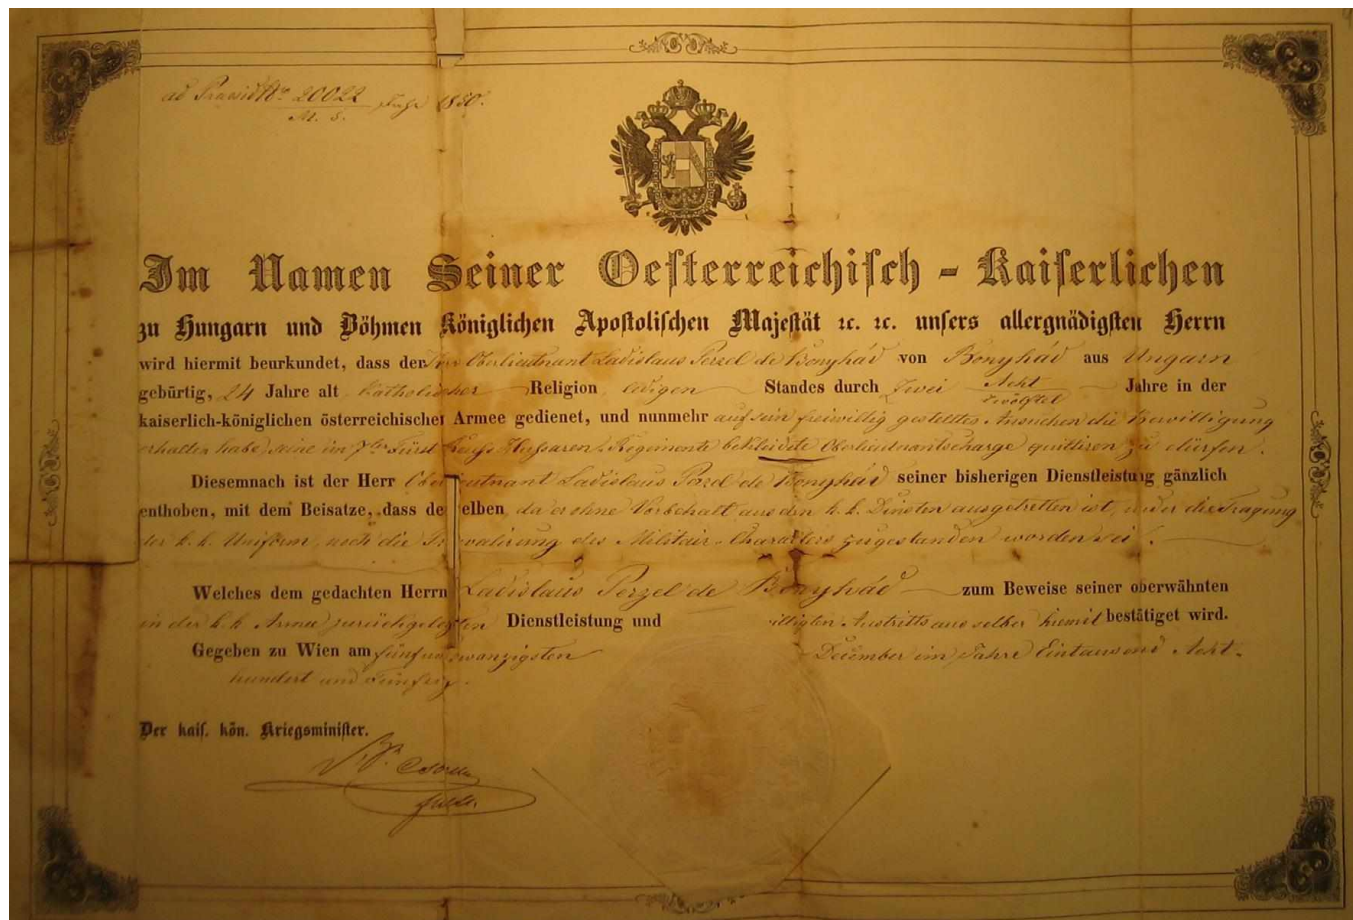 ad Praesid No. 20022 1850.
M. S.
Im Namen Seiner Oesterreichisch - Kaiserlichen
zu Hungarn und Böhmen Königlichen Apostolischen Majestät ꝛc. ꝛc. unsers allergnädigsten Herrn
wird hiermit beurkundet, dass der Oberlieutnant Ladislaus Perzel de Bonyhád von Bonyhád aus Ungarn
gebürtig, 24 Jahre alt Katholischer Religion ledigen Standes durch Zwei Acht zwölftel Jahre in der
kaiserlich-königlichen österreichischen Armee gedienet, und nunmehr auf sein freiwillig gestelltes Ansuchen die Bewilligung
erhalten habe, seine im 7ten Fürst Reuß Hussaren Regimente bekleidete Oberlieutnantscharge quittiren zu dürfen.
Diesemnach ist der Herr Oberlieutnant Ladislaus Perzel de Bonyhád seiner bisherigen Dienstleistung gänzlich
enthoben, mit dem Beisatze, dass demselben, da er ohne Vorbehalt aus den k. k. Diensten ausgetretten ist, weder die Tragung
der k. k. Uniform, noch die des Militair-Charakters zugestanden worden sei.
Welches dem gedachten Herrn Ladislaus Perzel de Bonyhád zum Beweise seiner oberwähnten
in der k. k. Armee zurückgelegten Dienstleistung und willigten Austritts aus selber hiemit bestätiget wird.
Gegeben zu Wien am fünfundzwanzigsten December im Jahre Eintausend Acht-
hundert und Fünfzig.
Der kais. kön. Kriegsminister.